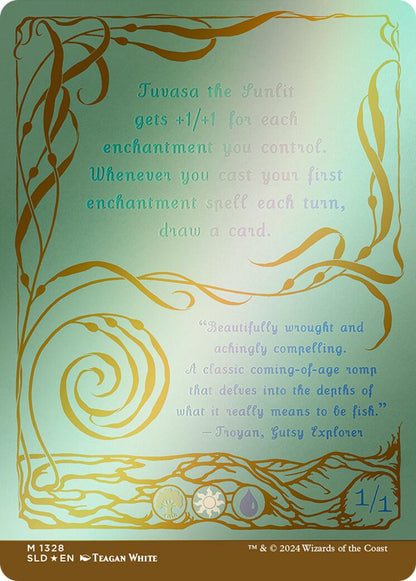 Tuvasa the Sunlit
gets +1/+1 for each
enchantment you control.
Whenever you cast your first
enchantment spell each turn,
draw a card.
“Beautifully wrought and
achingly compelling.
A classic coming-of-age romp
that delves into the depths of
what it really means to be fish.”
—Troyan, Gutsy Explorer
1/1
M 1328
SLD ★ EN Teagan White
™ & © 2024 Wizards of the Coast